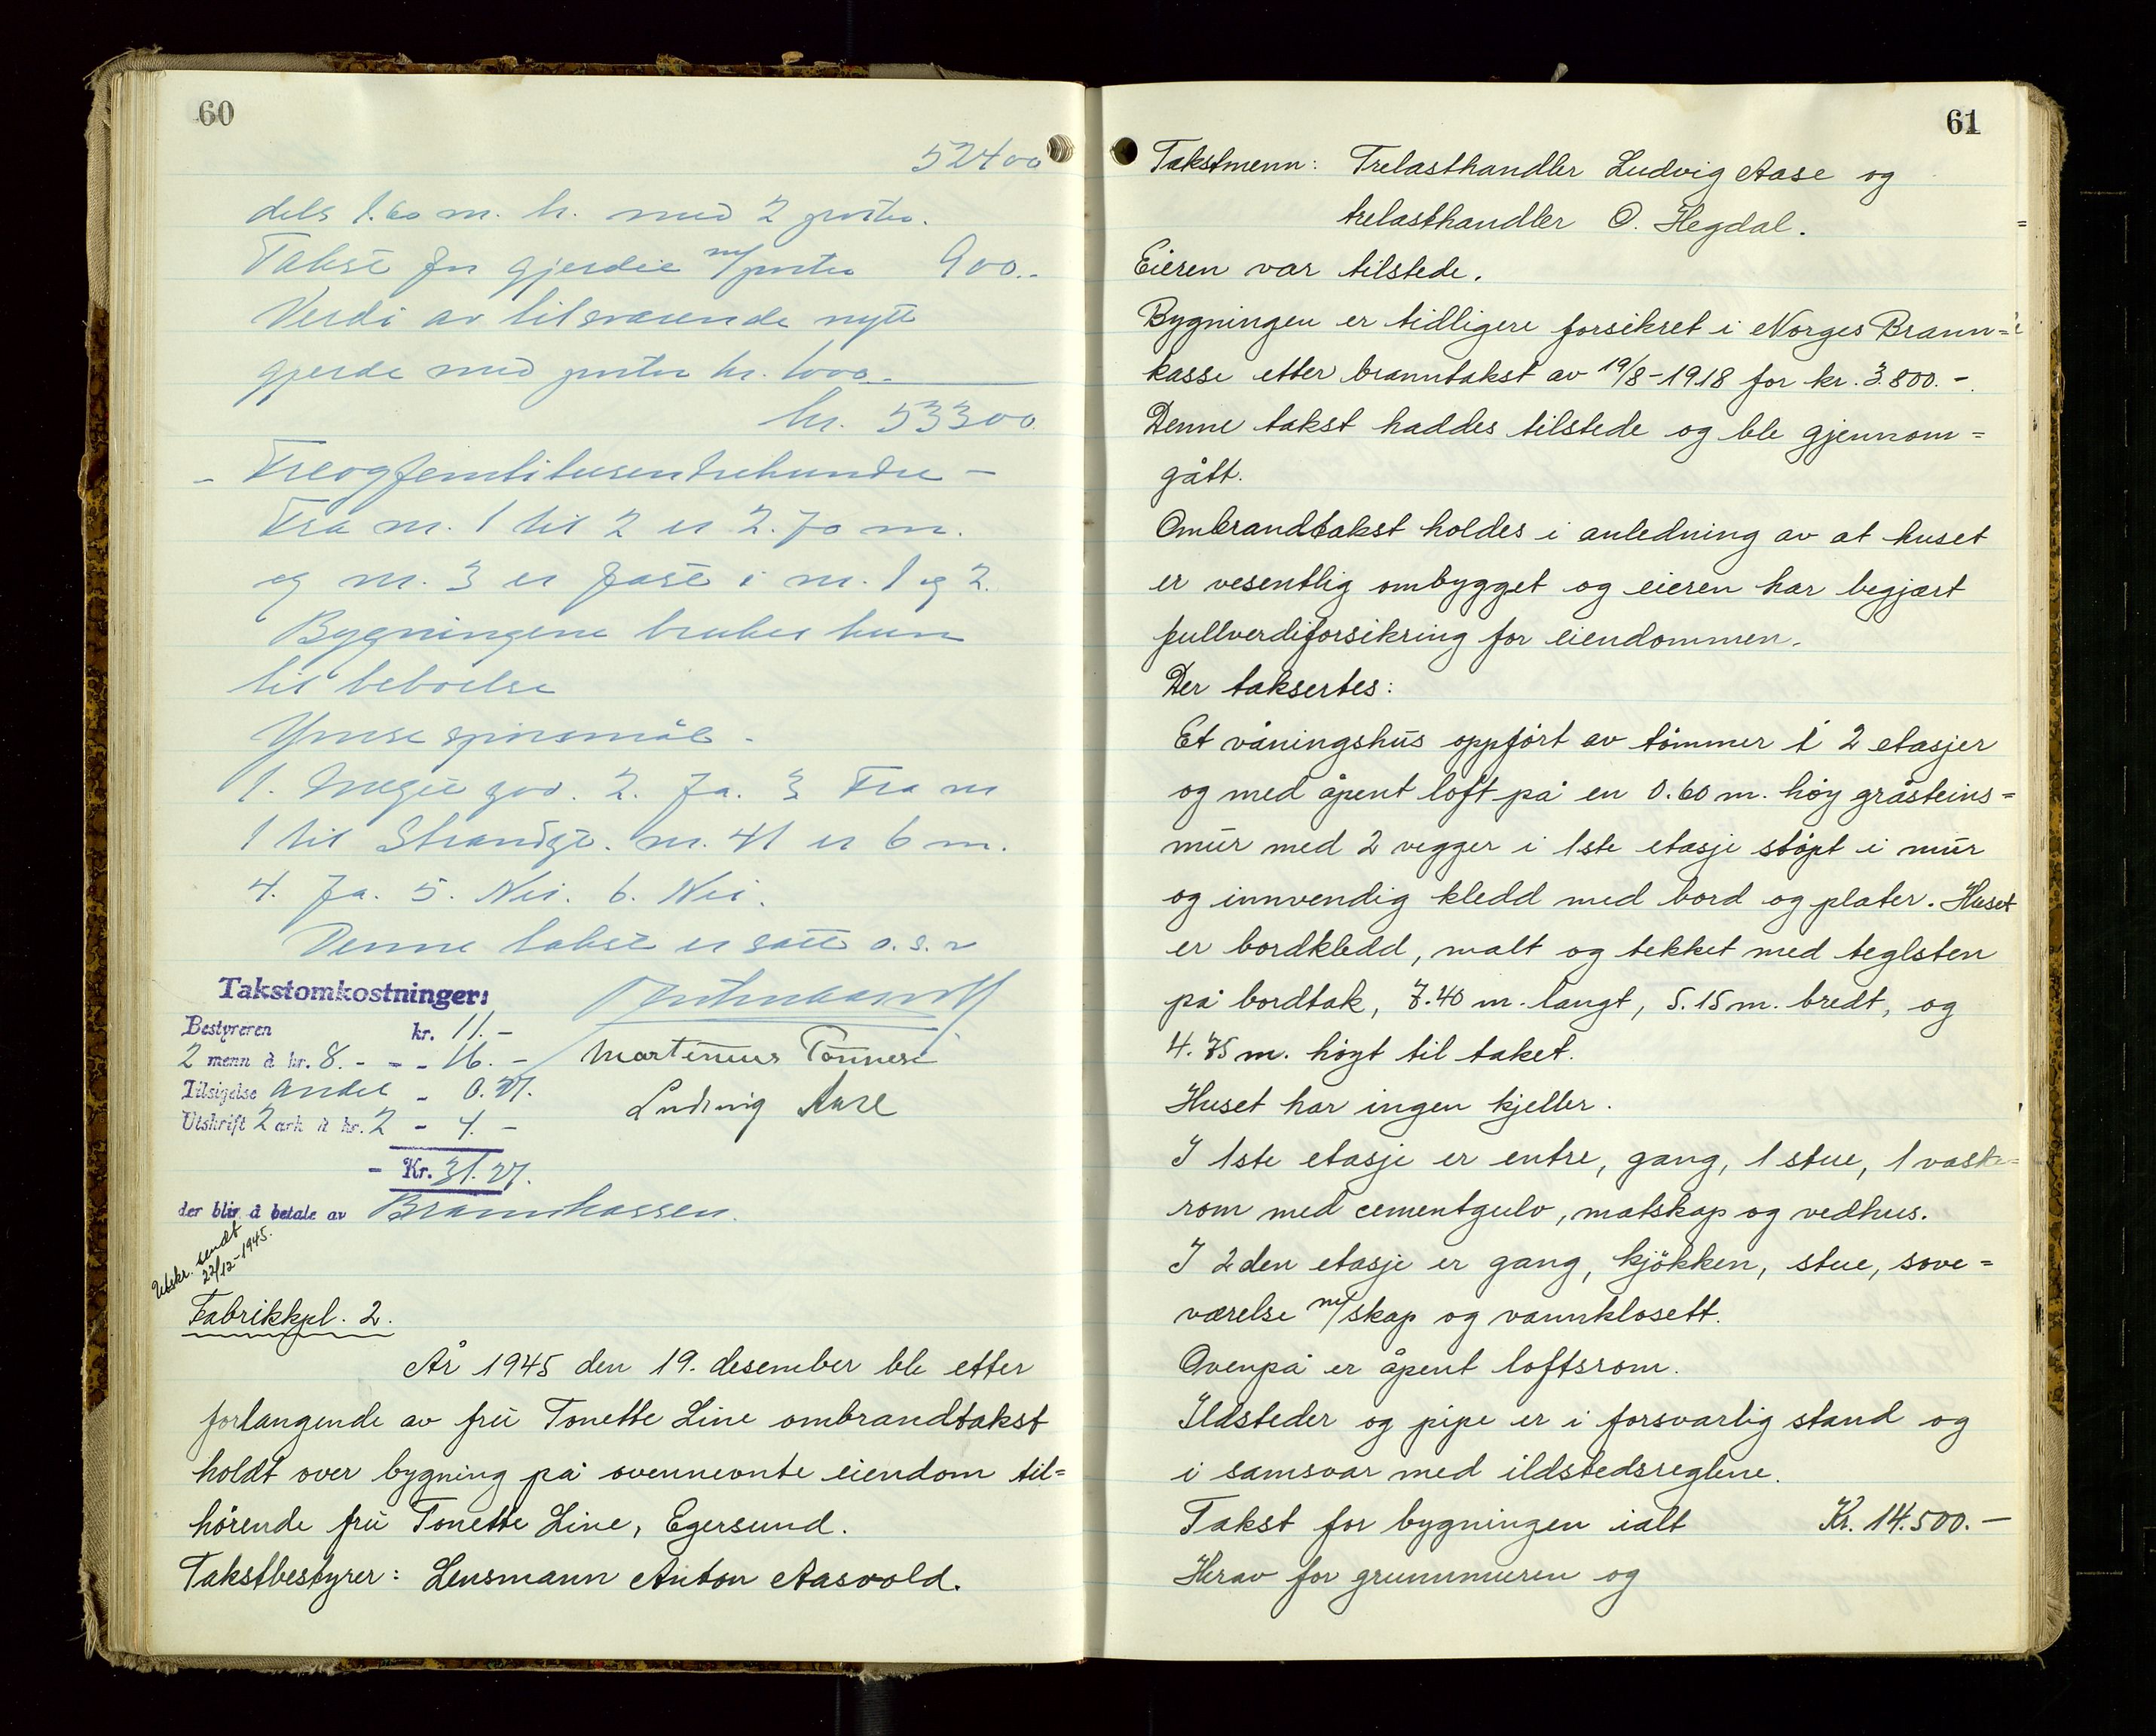 60
52400
dels 1.60 m. h. med 2 porter.
Takst for gjerdet m/porter 900.-
Verdi av tilsvarende nytt
gjerde med porter kr. 1000.-
kr. 53300.
- Treogfemtitusentrehundre -
Fra nr. 1 til 2 er 2.70 m.
og nr. 3 er fast i nr. 1 og 2.
Bygningene brukes kun
til beboelse
Ymse spørsmål -
1. Meget god. 2. Ja. 3 Fra nr
1 til Strandgt. nr. 41 er 6 m.
4. Ja. 5. Nei. 6. Nei.
Denne takst er satt o.s.v
Takstomkostninger:
Bestyreren kr. 11.-
2 menn à kr. 8.- - - 16.-
Martinius Tønnesen
Tilsigelse andel - 0.27.
Ludvig Aase
Utskrift 2 ark à kr. 2 - 4.-
- Kr. 31.27.
der blir å betale av Brannkassen.
Utskr. sendt
22/12-1945.
Fabrikkpl. 2.
År 1945 den 19. desember ble etter
forlangende av frú Tonette Line ombrandtakst
holdt over bygning på ovennevnte eiendom til=
hørende frú Tonette Line, Egersund.
Takstbestyrer: Lensmann Anton Aasvold.
61
Takstmenn: Trelasthandler Ludvig Aase og
trelasthandler O. Hegdal.
Eieren var tilstede.
Bygningen er tidligere forsikret i Norges Brann=
kasse etter branntakst av 19/8-1918 for kr. 3.800.-.
Denne takst haddes tilstede og ble gjennom=
gått.
Ombrandtakst holdes i anledning av at huset
er vesentlig ombygget og eieren har begjært
fullverdiforsikring for eiendommen.
Der taksertes:
Et våningshús oppført av tømmer i 2 etasjer
og med åpent loft på en 0.60 m. høy gråsteins=
múr med 2 vegger i 1ste etasje støpt i múr
og innvendig kledd med bord og plater. Huset
er bordkledd, malt og tekket med teglsten
på bordtak, 7.40 m. langt, 5.15 m. bredt, og
4.75 m. høyt til taket.
Huset har ingen kjeller.
I 1ste etasje er entre, gang, 1 stue, 1 vaske=
rom med cementgulv, matskap og vedhus.
I 2den etasje er gang, kjøkken, stue, sove=
værelse m/skap og vannklosett.
Ovenpå er åpent loftsrom.
Ildsteder og pipe er i forsvarlig stand og
i samsvar med ildstedsreglene.
Takst for bygningen ialt Kr. 14.500.-
Herav for grunnmuren og